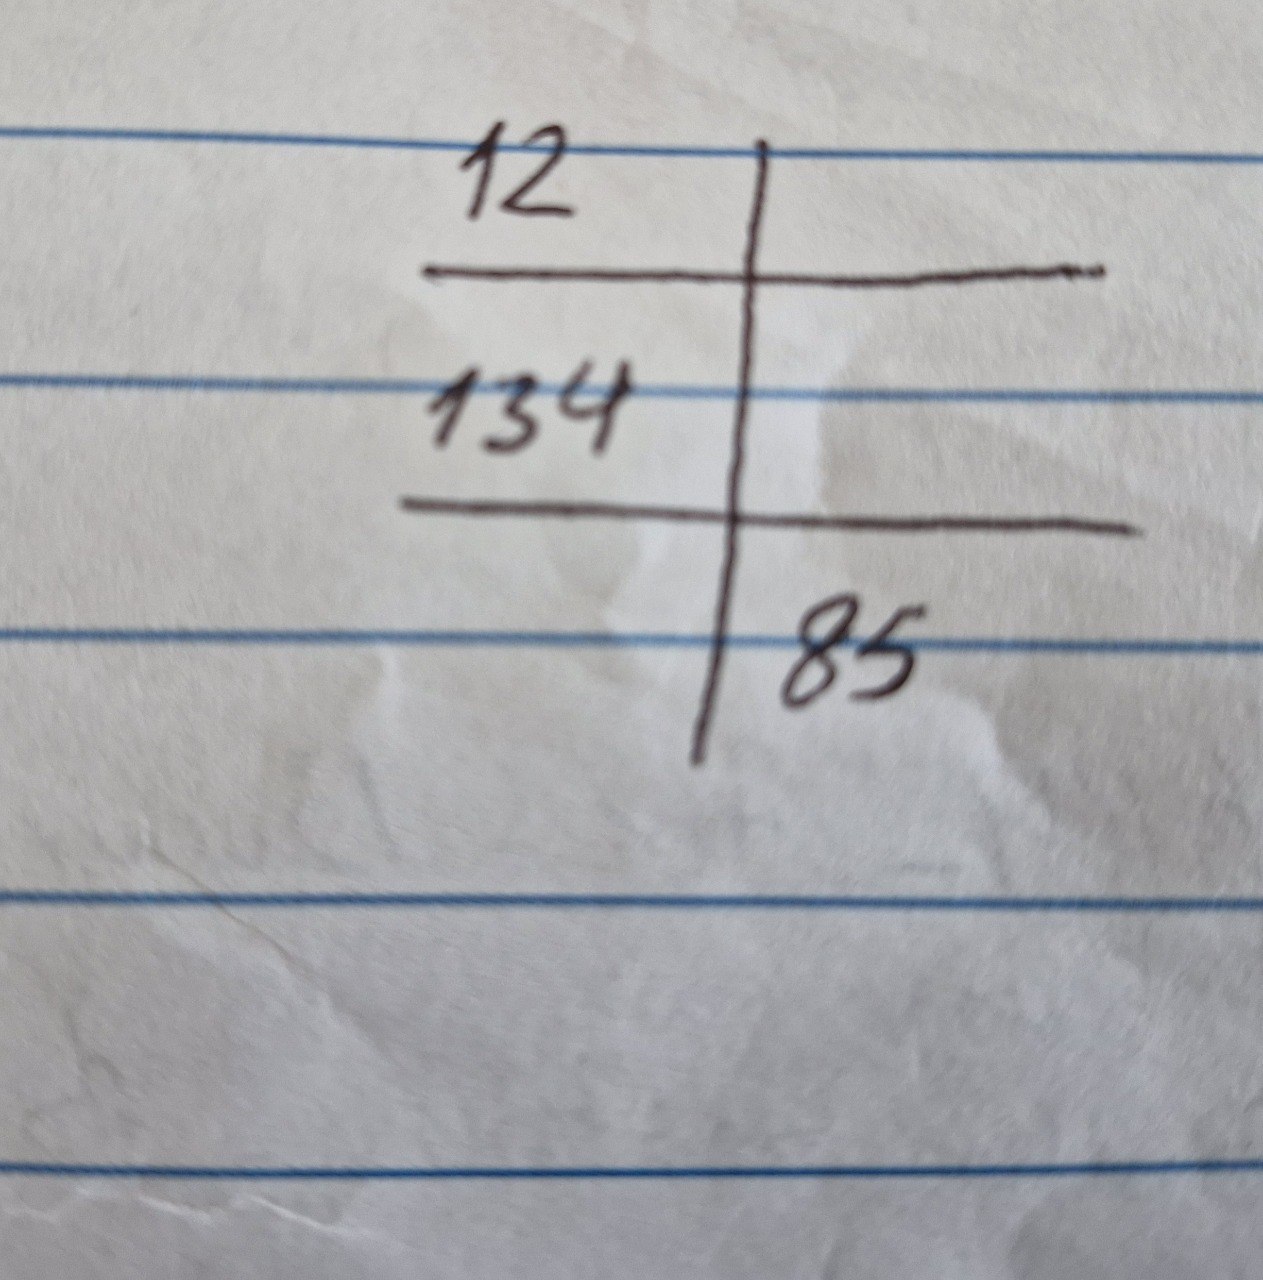 12
134
85